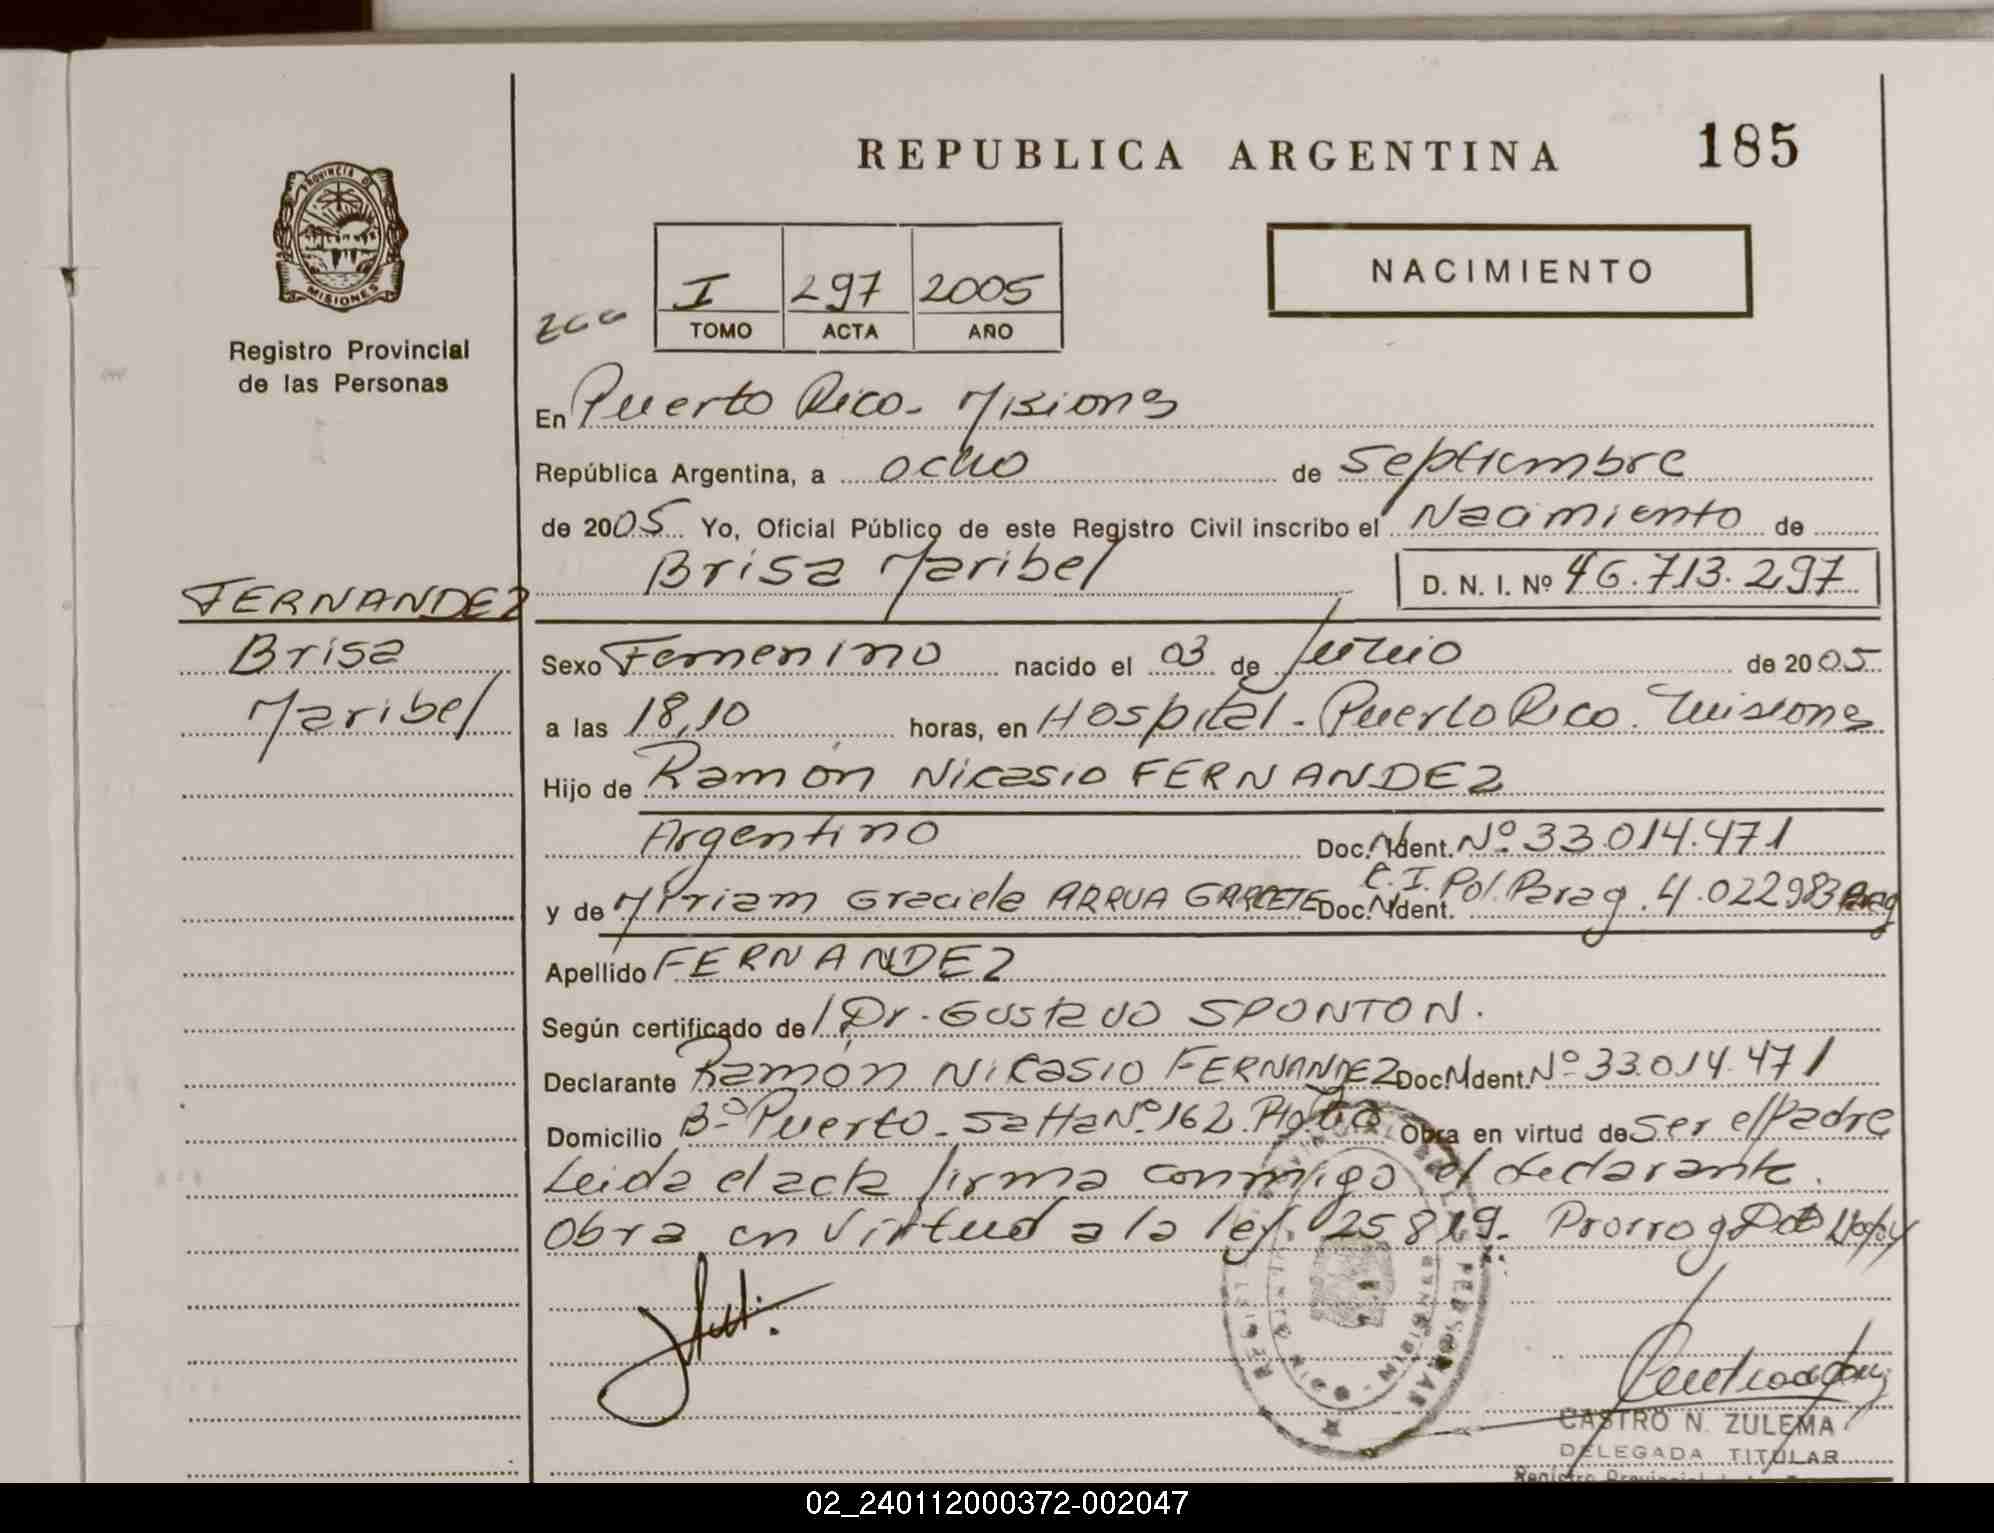 REPUBLICA ARGENTINA
185
PROVINCIA DE
MISIONES
Registro Provincial
de las Personas
I 297 2005
TOMO ACTA AÑO
NACIMIENTO
En Puerto Rico - Misiones
República Argentina, a ocho de septiembre
de 2005 Yo, Oficial Público de este Registro Civil inscribo el Nacimiento de
Brisa Maribel D. N. I. Nº 46.713.297
FERNANDEZ
Brisa
Maribel
Sexo Femenino nacido el 03 de de 2005
a las 18,10 horas, en Hospital - Puerto Rico. Misiones
Hijo de Ramón Nicasio FERNANDEZ
Argentino Doc. Ident. Nº 33.014.471
y de Myriam Graciela ARRUA GARCETE Doc. Ident. C. I. Pol. Parag. 4.022983
Apellido FERNANDEZ
Según certificado de Dr. Gustavo SPONTON.
Declarante Ramón Nicasio FERNANDEZ Doc. Ident. Nº 33.014.471
Domicilio Bº Puerto - Nº 162 Obra en virtud de ser el Padre
Leida el acta firma conmigo el declarante.
Obra en virtud a la ley 25819 -
CASTRO N. ZULEMA
DELEGADA TITULAR
Registro Provincial
02_240112000372-002047